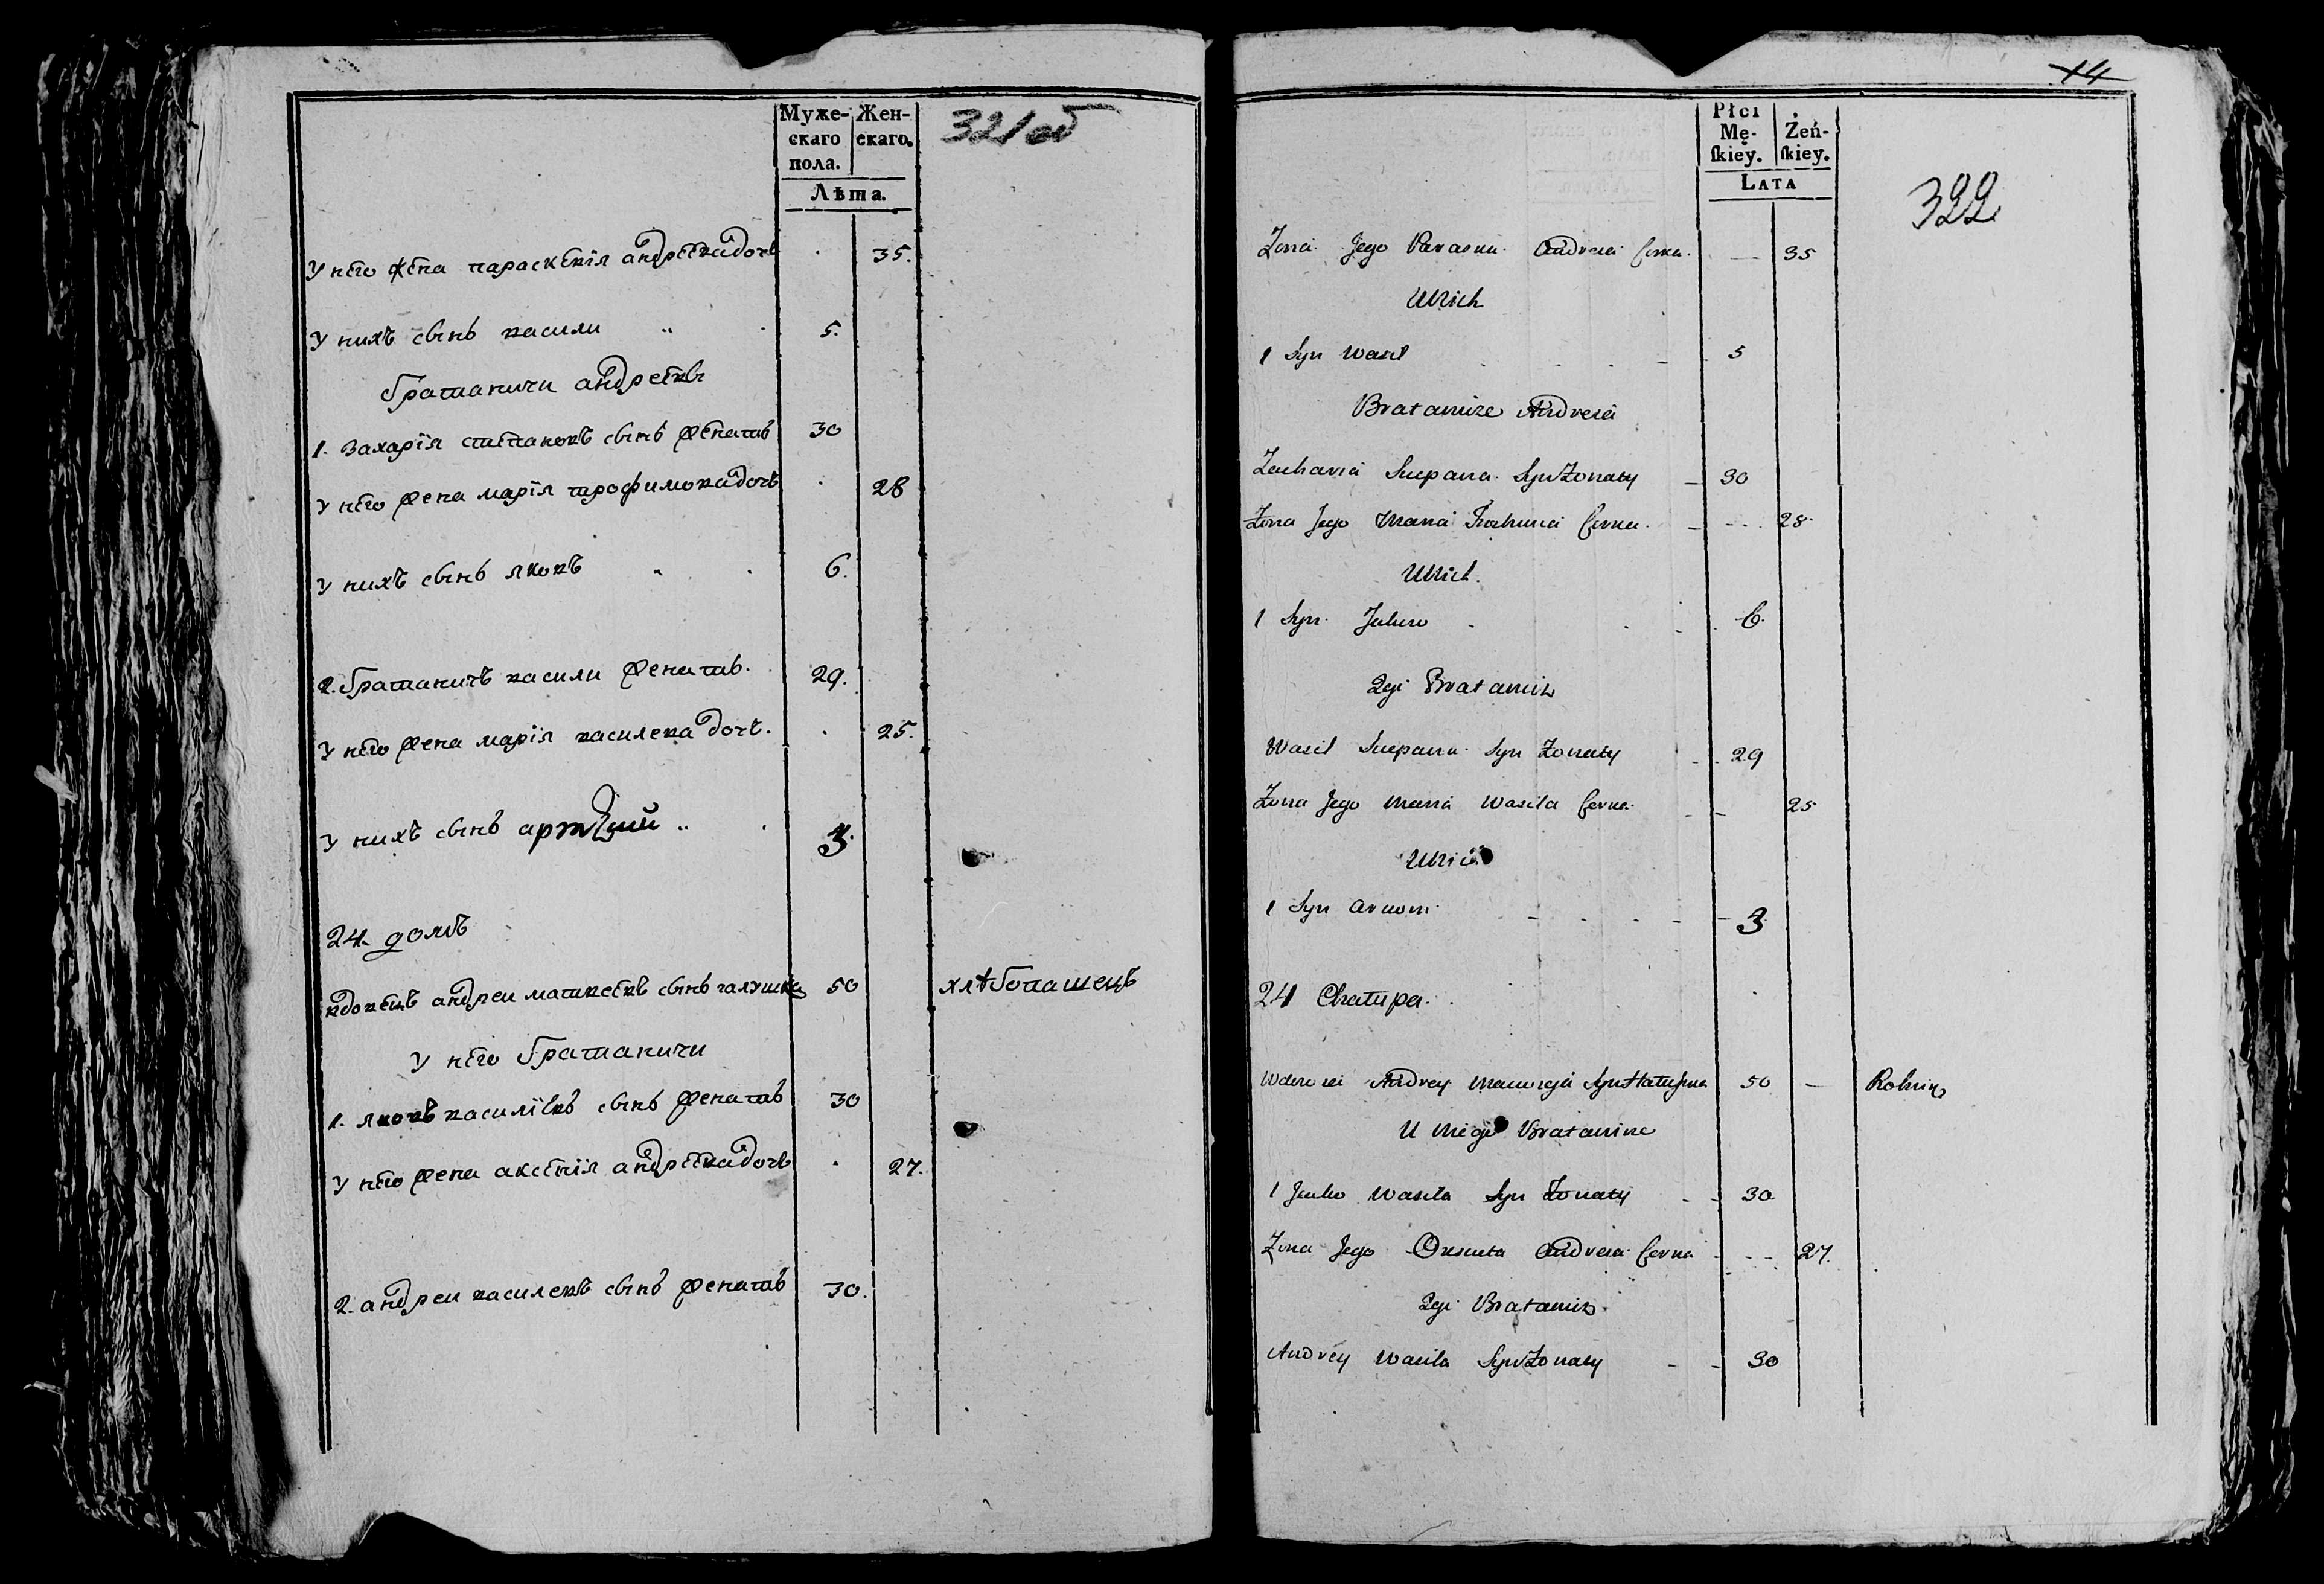 Муже-
скаго
пола.
Жен-
скаго.
Лѣта.
321 об
У него жена параскевiя андреева дочь 35.
У нихъ сынъ васили 5.
братаничи андреевы
1. Захарiя степановъ сынъ женатъ 30
У него жена марiя трофимова дочь 28
У нихъ сынъ яковъ 6.
2. братаничъ васили женатъ. 29.
У него жена марiя василева дочь. 25.
У нихъ сынъ 3.
24. домъ
вдовецъ андреи матвеевъ сынъ галушка 50 хлѣбопашецъ
У него братаничи
1. яковъ василiевъ сынъ женатъ 30
У него жена аксенiя андреева дочь 27.
2. андреи василевъ сынъ женатъ 30.
14
Płci
Mę-
skiey.
Żeń-
skiey.
Lata
322
Zona Jego Paraska Andreia Corka 35
U Nich
1 Syn Wasil 5
Bratanice Andreia
Zacharia Stepana Syn Zonaty 30
Zona Jego Maria Corka 28
U Nich
1 Syn Jakow 6
2gi Bratanic
Wasil Stepana Syn Zonaty 29
Zona Jego Maria Wasila Corka 25
U Nich
1 Syn Artiom 3
24 Chatupa
Andrey Matwieja Syn Hatuszka 50 Rolnik
U Niego Bratanice
1 Jacko Wasila Syn Zonaty 30
Zona Jego Oxenta Andreia Corka 27.
2gi Bratanic
Andrey Wasila Syn Zonaty 30